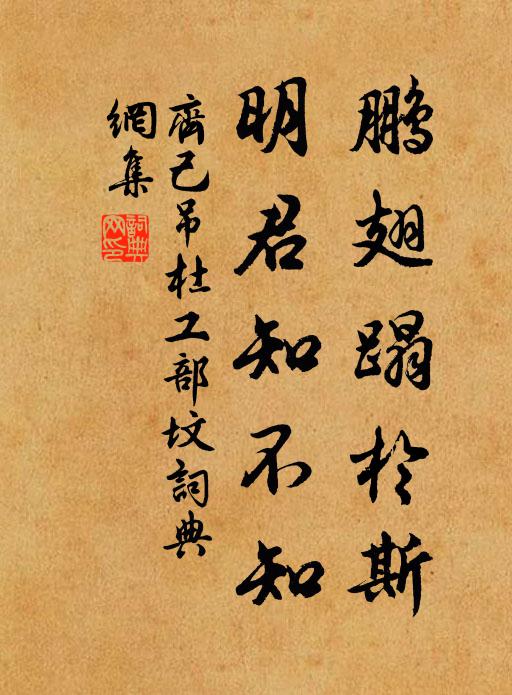 鵬翅蹋於斯
明君知不知
齊己吊杜工部坟詞典
網集
詞典網印